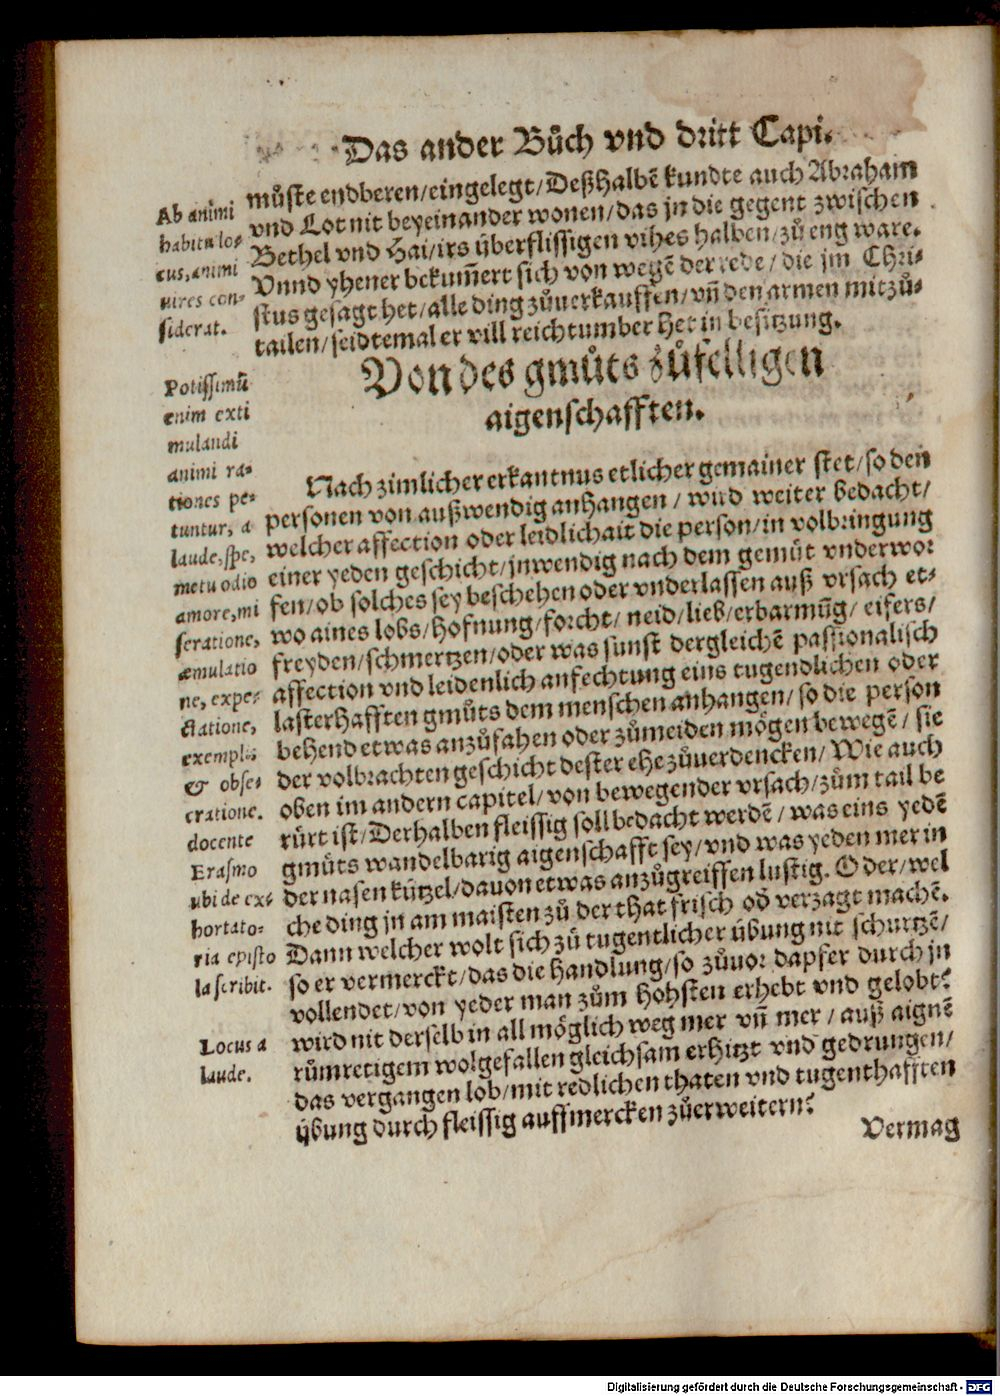 Das ander Bůch vnd dritt Capi.
můste endberen/eingelegt/Deßhalbē kundte auch Abraham
vnd Lot nit beyeinander wonen/das jn die gegent zwischen
Bethel vnd Hai/irs überflissigen vihes halben/zů eng ware.
Vnnd yhener bekum̄ert sich von wegē der rede/die jm Chri-
stus gesagt het/alle ding zůuerkauffen/vn̄ den armen mitzů-
tailen/seidtemal er vill reichtumber het in besitzung.
Ab animi
habitu lo-
cus, animi
uires con-
siderat.
Von des gmůts zůfelligen
aigenschafften.
Nach zimlicher erkantnus etlicher gemainer stet/so den
personen von außwendig anhangen/wird weiter bedacht/
welcher affection oder leidlichait die person/in volbringung
einer yeden geschicht/jnwendig nach dem gemüt vnderwor
fen/ob solches sey beschehen oder vnderlassen auß vrsach et-
wo aines lobs/hofnung/forcht/neid/lieb/erbarmūg/eifers/
freyden/schmertzen/oder was sunst dergleichē passionalisch
affection vnd leidenlich anfechtung eins tugendlichen oder
lasterhafften gmůts dem menschen anhangen/so die person
behend etwas anzůfahen oder zůmeiden mögen bewegē/sie
der volbrachten geschicht dester ehe zůuerdencken/Wie auch
oben im andern capitel/von bewegender vrsach/zům tail be
rürt ist/Derhalben fleissig soll bedacht werdē/was eins yedē
gmůts wandelbarig aigenschafft sey/vnd was yeden mer in
der nasen kützel/dauon etwas anzůgreiffen lustig. Oder/wel
che ding jn am maisten zů der that frisch od̄ verzagt machē.
Dann welcher wolt sich zů tugentlicher übung nit schurtzē/
so er vermerckt/das die handlung/so zůuor dapfer durch jn
vollendet/von yeder man zům höhsten erhebt vnd gelobt?
wird nit derselb in all möglich weg mer vn̄ mer/auß aignē
růmretigem wolgefallen gleichsam erhitzt vnd gedrungen/
das vergangen lob/mit redlichen thaten vnd tugenthafften
übung durch fleissig auffmercken zůerweitern?
Potissimū
enim exti
mulandi
animi ra-
tiones pe-
tuntur, a
laude, spe,
metu odio
amore, mi
seratione,
æmulatio
ne, expe-
ctatione,
exemplis
& obse-
cratione.
docente
Erasmo
ubi de ex-
hortato-
ria episto
la scribit.
Locus a
laude.
Vermag
Digitalisierung gefördert durch die Deutsche Forschungsgemeinschaft - DFG